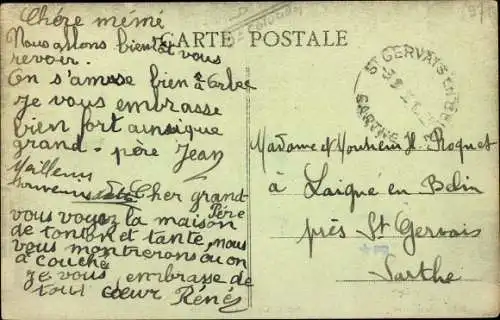 Chère mémé
CARTE POSTALE
Nous allons bientôt vous
revoir.
On s'amuse bien à
Je vous embrasse
bien fort ainsique
grand-père Jean
Meilleurs
souvenirs
Cher grand
Père
vous voyez la maison
de tonton et tante, nous
vous montrerons au on
à couché
Je vous embrasse de
tout coeur Renés
ST GERVAIS EN BELIN
SARTHE
Madame et Monsieur H. Roquet
à Laigné en Belin
près St Gervais
Sarthe